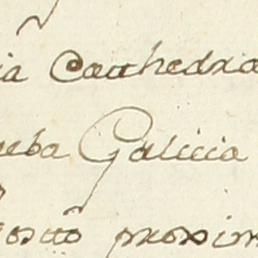 ia Cathedra
ueba Galicia
posito proxim